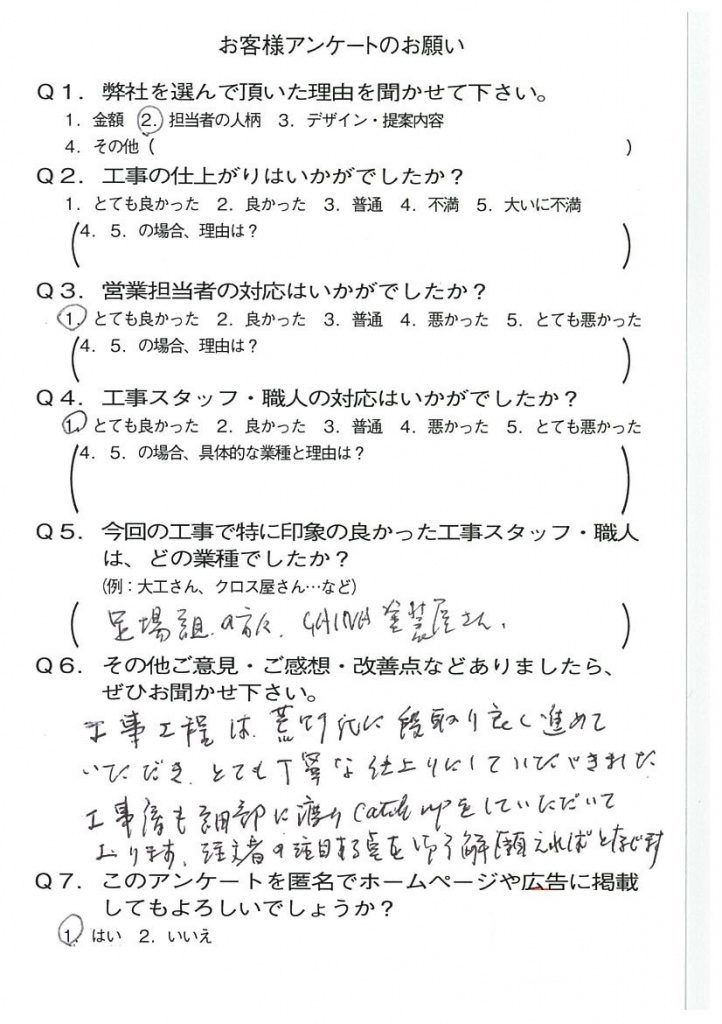 お客様アンケートのお願い
Q1．弊社を選んで頂いた理由を聞かせて下さい。
1．金額　2．担当者の人柄　3．デザイン・提案内容
4．その他（　　　）
Q2．工事の仕上がりはいかがでしたか？
1．とても良かった　2．良かった　3．普通　4．不満　5．大いに不満
（4．5．の場合、理由は？　　　）
Q3．営業担当者の対応はいかがでしたか？
1．とても良かった　2．良かった　3．普通　4．悪かった　5．とても悪かった
（4．5．の場合、理由は？　　　）
Q4．工事スタッフ・職人の対応はいかがでしたか？
1．とても良かった　2．良かった　3．普通　4．悪かった　5．とても悪かった
（4．5．の場合、具体的な業種と理由は？　　　）
Q5．今回の工事で特に印象の良かった工事スタッフ・職人
は、どの業種でしたか？
（例：大工さん、クロス屋さん…など）
（足場組の方々、GAINA塗装屋さん。）
Q6．その他ご意見・ご感想・改善点などありましたら、
ぜひお聞かせ下さい。
工事工程は、段取り良く進めて
いただき、とても丁寧な仕上りにしていただきました
工事後も細部に渡りcatch upをしていただいて
おります。注文者の注目する点をご了解願えればと存じます
Q7．このアンケートを匿名でホームページや広告に掲載
してもよろしいでしょうか？
1．はい　2．いいえ